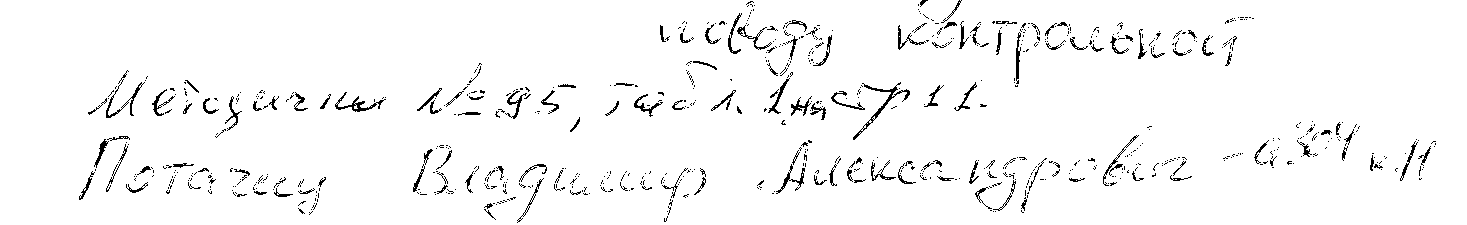 поводу контрольной
Методички № 95, табл. 1 на стр 11.
Потачиц Владимир Александрович - а304 к.11